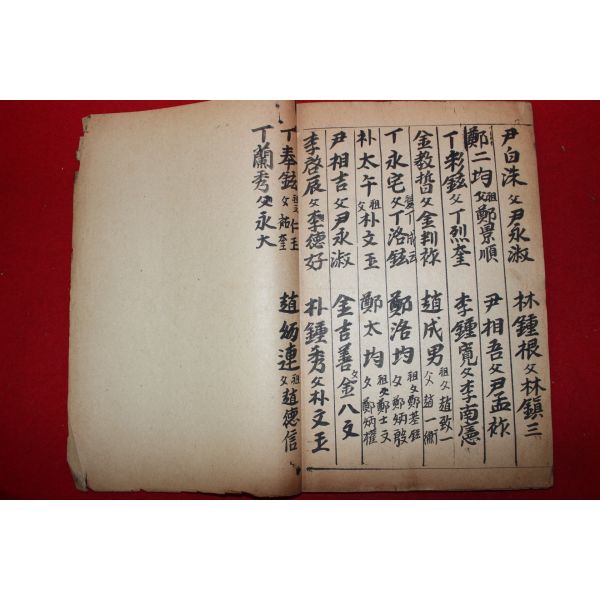 尹白洙 父尹永淑
林鍾根 父林鎭三
鄭二均 祖鄭景順 父
尹相吾 父尹孟祚
丁彩鉉 父丁烈奎
李鍾寬 父李南憲
金教晳 父金判祚
趙成男 祖父趙致一 父趙一衡
丁永宅 父丁洛鉉
鄭洛均 祖父鄭基鉉 父鄭炳殷
朴太午 祖朴文玉 父
鄭太均 祖父鄭士文 父鄭炳權
尹相吉 父尹永淑
金吉善 父金八文
李啓辰 父李德好
朴鍾秀 父朴文玉
丁奉鉉 祖父仁玉 父 奎
趙 連 祖趙德信 父
丁蘭秀 父永大